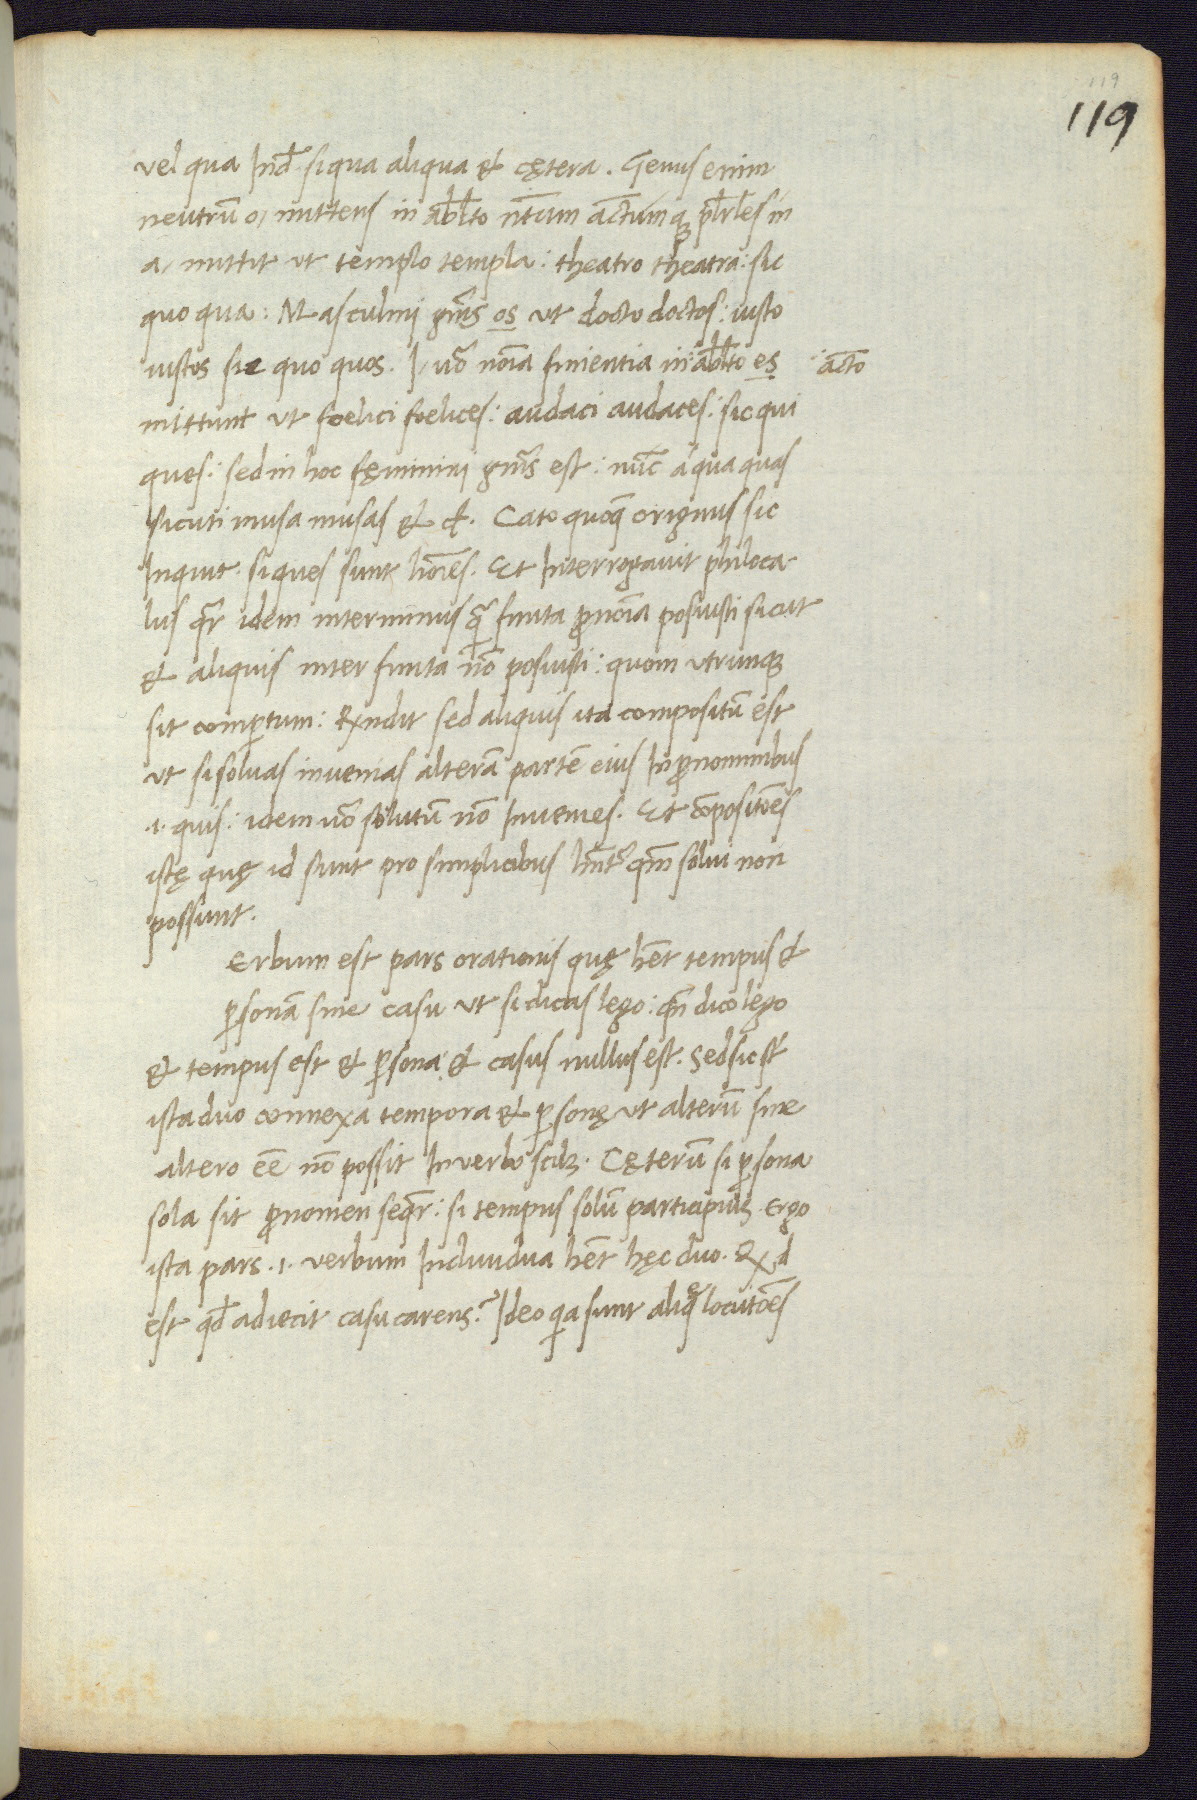 119
119
vel qua Ind̄ siqua aliqua & cętera. Genus enim
neutrū o, mittens in ab̄lto n̄tum actūmq; pl̄rles in
a, mittit ut templo templa: theatro theatra: sic
quo qua: Masculini gn̄is os ut docto doctos: iusto
iustos sic quo quos. I, ūo nōia finientia in ab̄lto es acto
mittunt ut foelici foelices: audaci audaces: sic qui
ques: sed in hoc fęminini gn̄is est: nūc a qua quas
sicuti musa musas & c̄. Cato quoq; originus sic
Inquit siques sunt hōies. Et Interrogavit philoca
lus q̄r idem interminus q̄ finita p̄noīa posuisti sicut
& aliquis inter finita nō posuisti: quom utrunque
sit compertum: Rxndit sed aliquis ita compositū est
ut si solvas invenias alterā partē eius In p̄nominibus
.i. quis: idem ūo solutū nō Invenies. Et cōpositōes
istę quę id sunt pro simplicibus hn̄t qm̄ solvi non
possunt.
Erbum est pars orationis quę hēt tempus &
p̄sonā sine casu ut si dicas lego: qn̄ dico lego
& tempus est & p̄sona: & casus nullus est. Sed sic st̄
ista duo connexa tempora & p̄sonę ut alterū sine
altero eē nō possit In verbo sciłz. Cęterū si p̄sona
sola sit p̄nomen seq̄r: si tempus solū participiū. Ergo
ista pars .i. verbum Individua hēt hęc duo. Rx d
est qd̄ adiecit casu carens? Ideo qa sunt aliq̄ locutōes